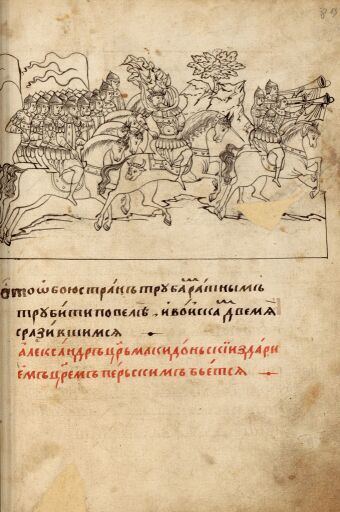 ѿтоѡбоюстранътрꙋбамратнымъ
трꙋбитиповелѣ. ивоискамдвемѧ
сразившимсѧ
алеѯандръцр҃ьмакидоньскїиздари
емъцр҃емъперьскимъбьетсѧ